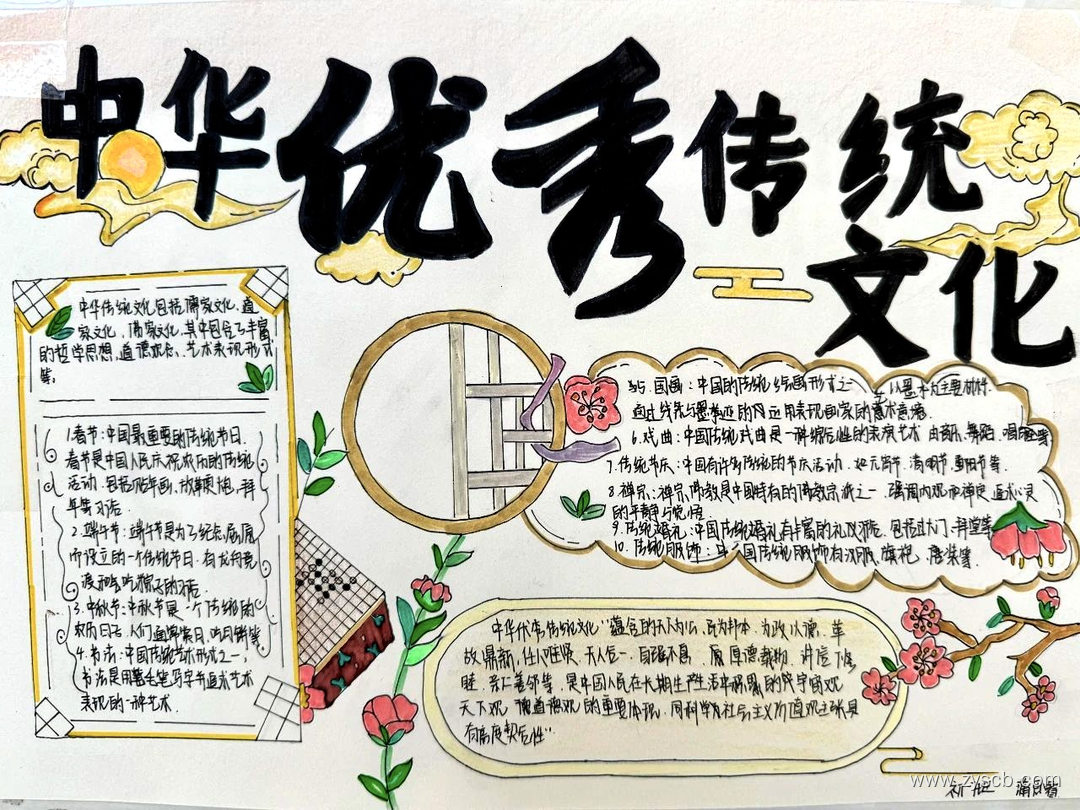 中华优秀传统
文化
中华传统文化包括儒家文化、道
家文化、佛家文化,其中包含了丰富
的哲学思想、道德观念、艺术表现形式
等。
1.春节:中国最重要的传统节日.
春节是中国人民庆祝农历的传统
活动.包括贴年画、放鞭炮、拜
年等习俗.
2.端午节:端午节是为了纪念屈原
而设立的一个传统节日.有龙舟竞
渡和吃粽子的习俗.
3.中秋节:中秋节是一个传统的
农历日子,人们通常赏日、吃月饼等
4.书法:中国传统艺术形式之一,
书法是用墨会笔写字书追求艺术
表现的一种艺术.
国画:中国的传统绘画形式之一,以墨水为主要材料.
通过线条与墨的运用表现画家的意术意境.
6.戏曲:中国传统戏曲是一种综合性的表演艺术 由音乐、舞蹈、唱
7.传统节庆:中国有许多传统的节庆活动.如元宵节、清明节、重阳节等.
8.禅宗:禅宗佛教是中国特有的佛教宗派之一.强调内观和禅定 追求心灵
的平静与觉悟.
9.传统婚礼:中国传统婚礼有丰富的礼仪习俗.包括过大门、拜堂等
10.传统服饰:中国传统服饰有汉服、旗袍、唐装等.
中华优秀传统文化"蕴含的天下为公、民为邦本、为政以德、革
故鼎新、任人唯贤、天人合一、自强不息、厚德载物、讲信修
睦、亲仁善邻等,是中国人民在长期生产生活中积累的宇宙观
天下观、道德观的重要体现,同科学社会主义价值观主张具
有高度契合性"
www.zyscb.com